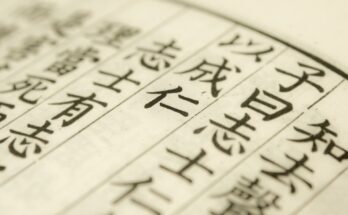 知去聲
子曰志士仁
以成仁
志士有志
理當死